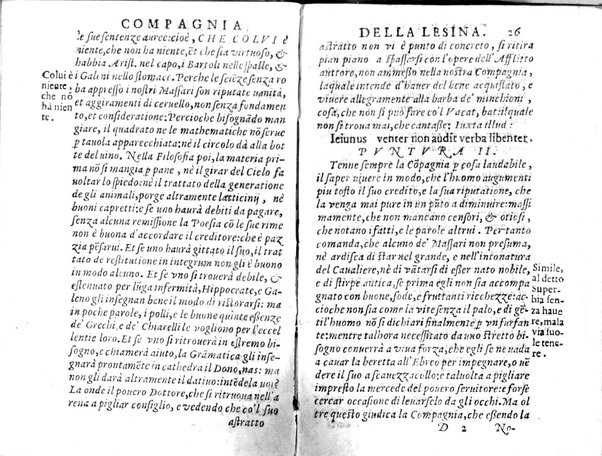 COMPAGNIA
le sue sentenze auree: cioè, CHE COLVI è
niente, che non ha niente, Et che sia virtuoso, &
habbia Arist. nel capo, i Bartoli nelle spalle, &
Colui è
niente,
che nõ
ha nien
te.
i Galeni nello stomaco. Perche le sciẽze senza ro
ba appresso i nostri Massari son riputate uanità,
et aggiramenti di ceruello, non senza fondamen
to, et consideratione: Percioche bisognãdo man
giare, il quadrato ne le mathematiche nõ serue
p tauola apparecchiata: nè il circolo dà alla bot
te del uino. Nella Filosofia poi, la materia pri-
ma nõ si mangia p pane, nè il girar del Cielo fa
uoltar lo spiedo: nè il trattato della generatione
de gli animali, porge altramente latticinij, nè
buoni capretti: e se uno haurà debiti da pagare,
senza alcuna remissione la Poesia cõ le sue rime
non è buona d'accordare il creditore: che è paz
zia pẽsarui. Et se uno haurà gittato il suo, il trat
tato de restitutione in integrum non gli è buono
in modo alcuno. Et se uno si trouerà debile, &
estenuato per lũga infermità, Hippocrate, e Ga-
leno gli insegnan bene il modo di ristorarsi: ma
in poche parole, i polli, e le buone quinte essenze
de' Grechi, e de' Chiarelli le vogliono per l'eccel
lentie loro. Et se uno si ritrouerà in estremo bi-
sogno, e chiamerà aiuto, la Grãmatica gli inse-
gnarà prontamẽte in cathedra il Dono, nas: ma
non gli darà altramente il datiuo: intẽdela uoi?
La onde il pouero Dottore, che si ritruoua nell'a
rena a pigliar consiglio, e vedendo che co'l suo
astratto
DELLA LESINA. 26
astratto non vi è punto di concreto, si ritira
pian piano a spassarsi con l'opere dell'Afflitto
auttore, non ammesso nella nostra Compagnia,
laquale intende d'hauer del bene acquistato, e
viuere allegramente alla barba de' minchioni,
cosa, che non si può fare co'l Vacat, bat: ilquale
non si troua mai, che cantasse: Iuxta illud:
Ieiunus venter non audit verba libenter.
PVNTVRA II.
Tenne sempre la Cõpagnia p cosa laudabile,
il saper viuere in modo, che l'huomo augumenti
piu tosto il suo credito, e la sua riputatione, che
la venga mai pure in un pũto a diminuire: massi
mamente, che non mancano censori, & otiosi,
che notano i fatti, e le parole altrui. Per tanto
comanda, che alcuno de' Massari non presuma,
nè ardisca di star nel grande, e nell'intonatura
del Caualiere, nè di vãtarsi di esser nato nobile,
e di stirpe antica, se prima egli non sia accompa
gnato con buone, sode, e fruttanti ricchezze: ac
cioche non sia come la vite senza il palo, e di gẽ-
til'huomo nõ si dichiari finalmente p vn furfan
te: mentre talhora necessitato da uno stretto bi-
sogno conuerrà a viua forza, che egli se ne vada
a cauar la beretta all'Ebreo per impegnare, o uẽ
dere il suo a scauezzacollo: e taluolta a pigliare
impresto la mercede del pouero seruitore: e forse
cercar occasione di leuarselo da gli occhi. Ma ol
tre questo giudica la Compagnia, che essendo la
Simile,
al detto
Super-
bia sen-
za haue
re, mala
via suo-
le tene-
re.
D 2 No-